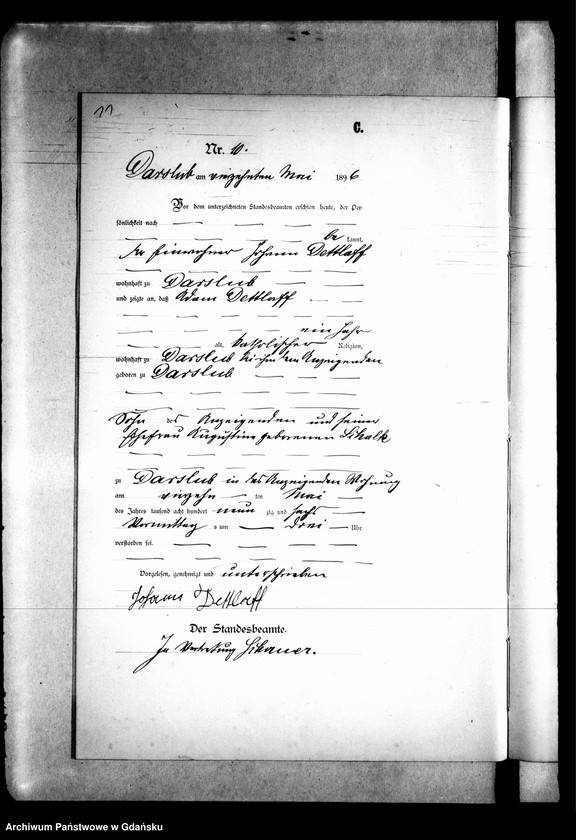 11
C.
Nr. 10.
Darslub am vierzehnten Mai 1896
Vor dem unterzeichneten Standesbeamten erschien heute, der Per-
sönlichkeit nach
be kannt,
der Einwohner Johann Dettlaff
wohnhaft zu Darslub
und zeigte an, daß Adam Dettlaff
ein Jahr
alt, katholischer Religion,
wohnhaft zu Darslub bei ihm dem Anzeigenden
geboren zu Darslub
Sohn des Anzeigenden und seiner
Ehefrau Augustine geborenen
zu Darslub in des Anzeigenden Wohnung
am vierzehn ten Mai
des Jahres tausend acht hundert neun zig und sechs
Vormittag s um drei Uhr
verstorben sei.
Vorgelesen, genehmigt und unterschrieben
Johann Dettlaff
Der Standesbeamte.
In Vertretung
Archiwum Państwowe w Gdańsku